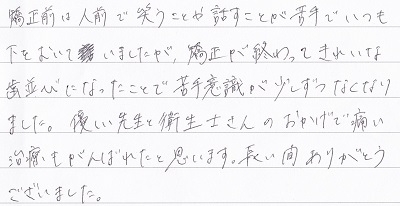 矯正前は人前で笑うことや話すことが苦手でいつも
下をむいていましたが、矯正が終わってきれいな
歯並びになったことで苦手意識が少しずつなくなり
ました。優しい先生と衛生士さんのおかげで痛い
治療もがんばれたと思います。長い間ありがとう
ございました。